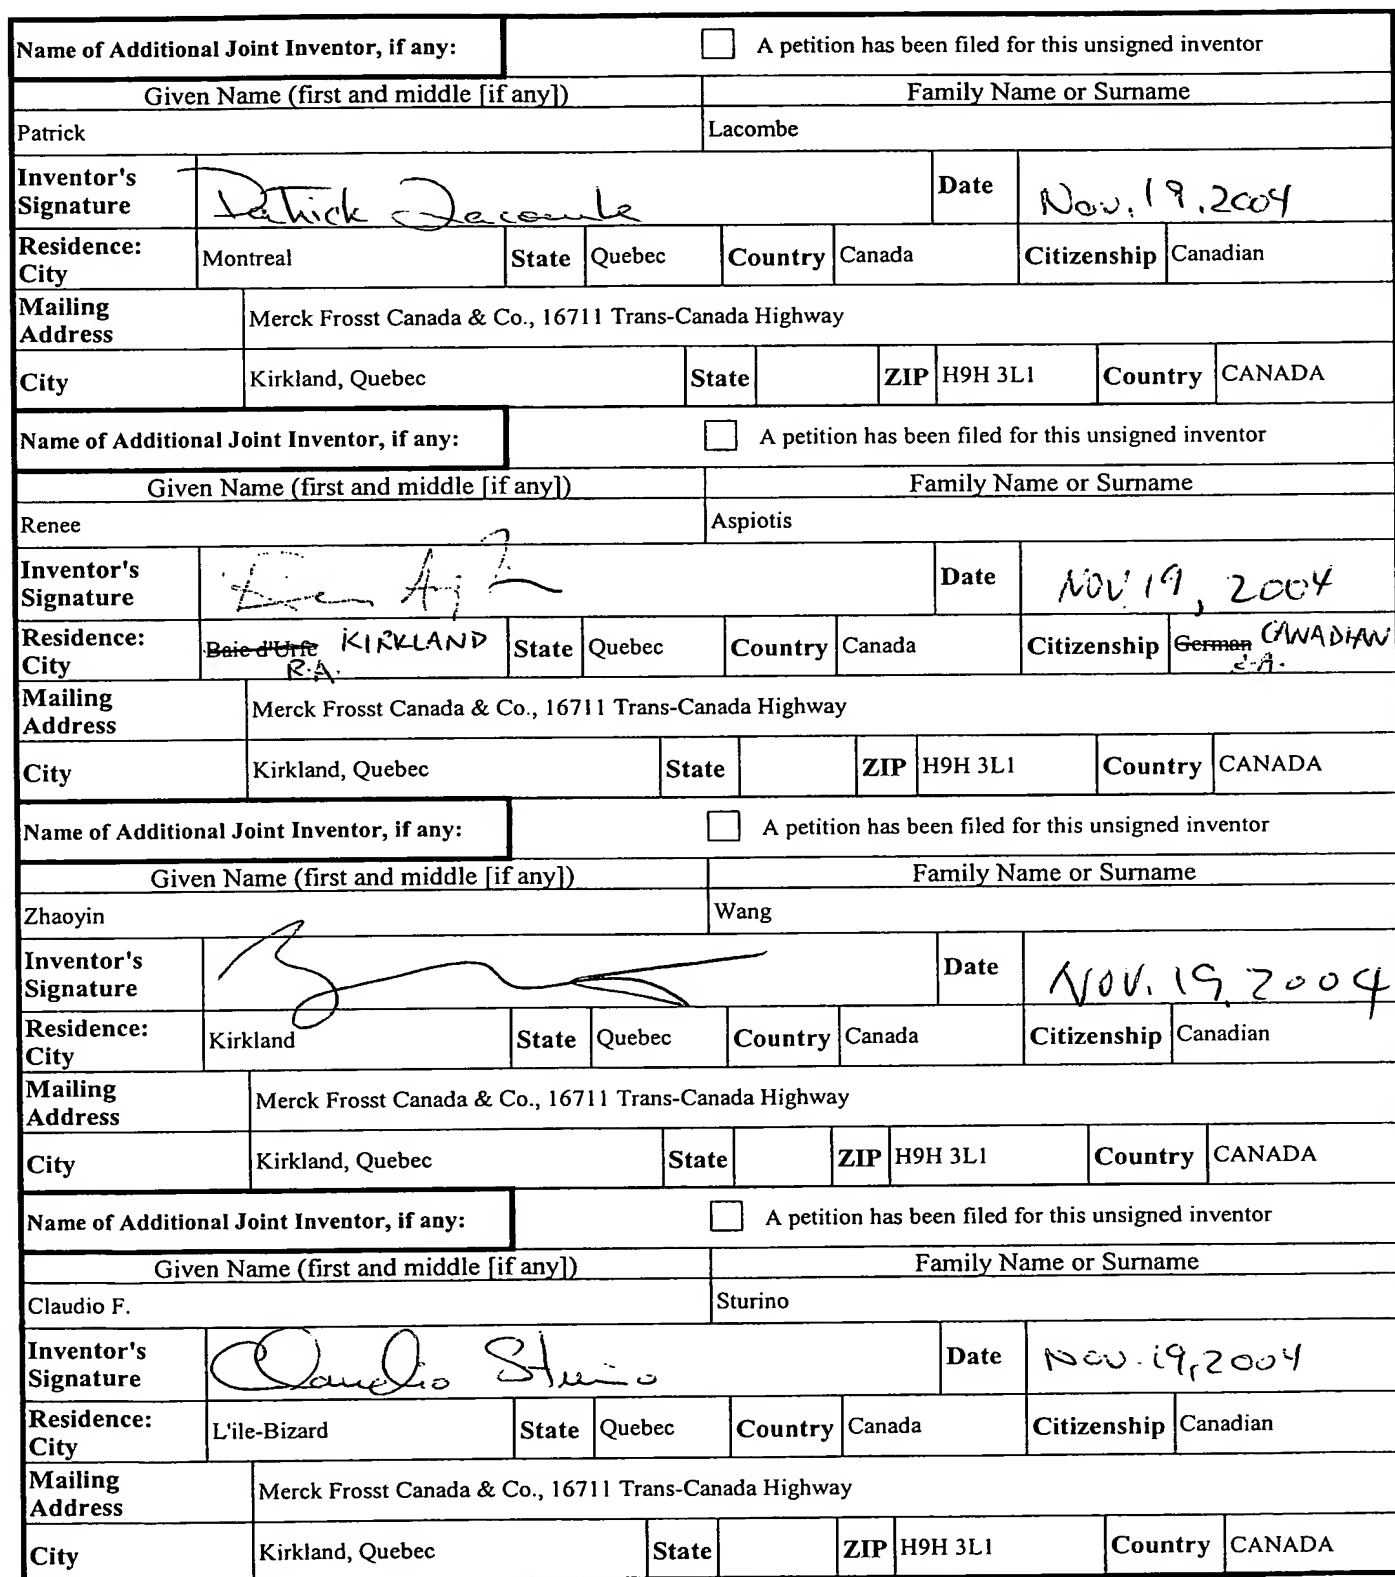 Name of Additional Joint Inventor, if any: A petition has been filed for this unsigned inventor
Given Name (first and middle [if any]) Family Name or Surname
Patrick Lacombe
Inventor's Signature Patrick Lacombe Date Nov. 19, 2004
Residence: City Montreal State Quebec Country Canada Citizenship Canadian
Mailing Address Merck Frosst Canada & Co., 16711 Trans-Canada Highway
City Kirkland, Quebec State ZIP H9H 3L1 Country CANADA
Name of Additional Joint Inventor, if any: A petition has been filed for this unsigned inventor
Given Name (first and middle [if any]) Family Name or Surname
Renee Aspiotis
Inventor's Signature Date NOV 19, 2004
Residence: City Baie d'Urfe KIRKLAND R.A. State Quebec Country Canada Citizenship German CANADIAN
Mailing Address Merck Frosst Canada & Co., 16711 Trans-Canada Highway
City Kirkland, Quebec State ZIP H9H 3L1 Country CANADA
Name of Additional Joint Inventor, if any: A petition has been filed for this unsigned inventor
Given Name (first and middle [if any]) Family Name or Surname
Zhaoyin Wang
Inventor's Signature Date NOV. 19, 2004
Residence: City Kirkland State Quebec Country Canada Citizenship Canadian
Mailing Address Merck Frosst Canada & Co., 16711 Trans-Canada Highway
City Kirkland, Quebec State ZIP H9H 3L1 Country CANADA
Name of Additional Joint Inventor, if any: A petition has been filed for this unsigned inventor
Given Name (first and middle [if any]) Family Name or Surname
Claudio F. Sturino
Inventor's Signature Claudio Sturino Date Nov. 19, 2004
Residence: City L'ile-Bizard State Quebec Country Canada Citizenship Canadian
Mailing Address Merck Frosst Canada & Co., 16711 Trans-Canada Highway
City Kirkland, Quebec State ZIP H9H 3L1 Country CANADA